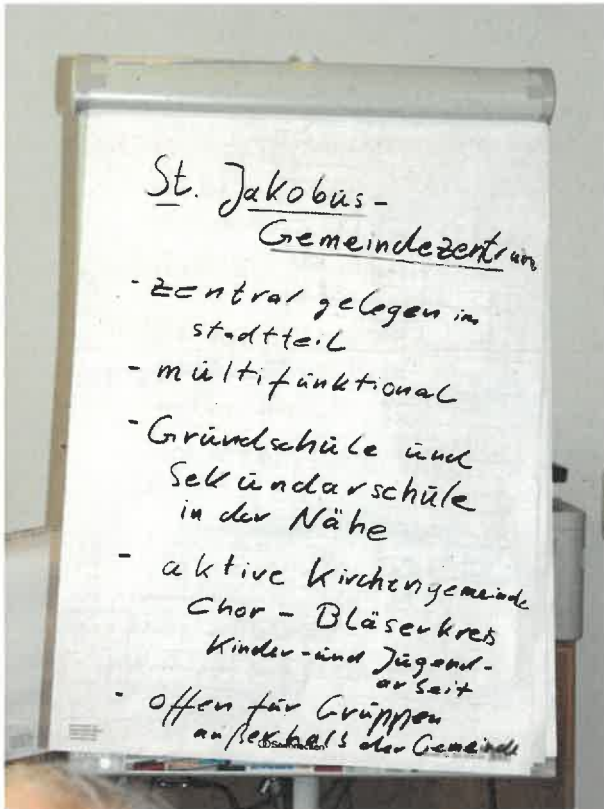 St. Jakobus-
Gemeindezentrum
- zentral gelegen im
stadtteil
- multifunktional
- Grundschule und
Sekundarschule
in der Nähe
- aktive Kirchengemeinde
Chor - Bläserkreis
Kinder- und Jugend-
arbeit
- offen für Gruppen
außerhalb der Gemeinde